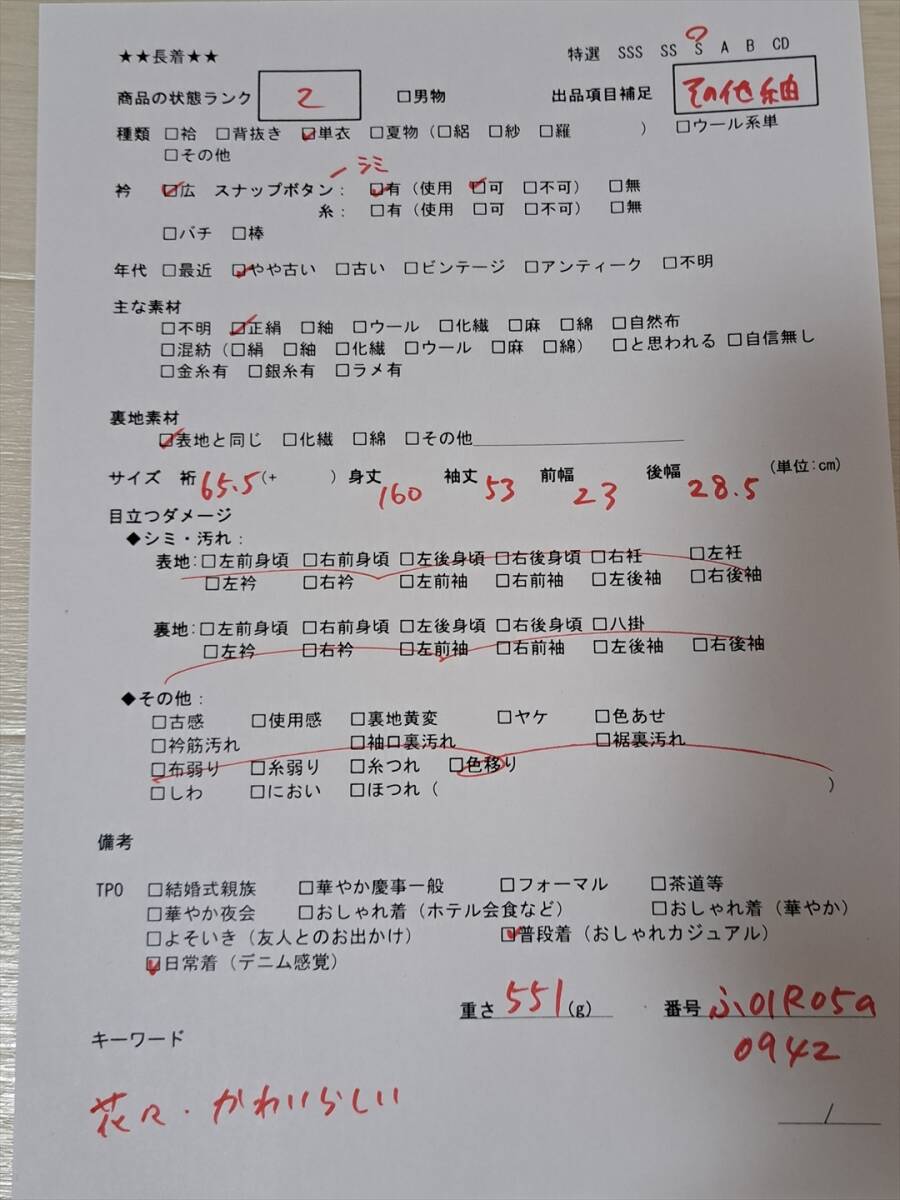 ★★長着★★ 特選 SSS SS S A B CD
商品の状態ランク 2 □男物 出品項目補足 その他紬
種類 □袷 □背抜き ☑単衣 □夏物（□絽 □紗 □羅 ） □ウール系単
□その他
シミ
衿 ☑広 スナップボタン： ☑有（使用 ☑可 □不可） □無
糸：□有（使用 □可 □不可） □無
□バチ □棒
年代 □最近 ☑やや古い □古い □ビンテージ □アンティーク □不明
主な素材
□不明 ☑正絹 □紬 □ウール □化繊 □麻 □綿 □自然布
□混紡（□絹 □紬 □化繊 □ウール □麻 □綿） □と思われる □自信無し
□金糸有 □銀糸有 □ラメ有
裏地素材
☑表地と同じ □化繊 □綿 □その他
サイズ 裄 65.5(+ ) 身丈 160 袖丈 53 前幅 23 後幅 28.5 (単位:cm)
目立つダメージ
◆シミ・汚れ：
表地:□左前身頃 □右前身頃 □左後身頃 □右後身頃 □右衽 □左衽
□左衿 □右衿 □左前袖 □右前袖 □左後袖 □右後袖
裏地:□左前身頃 □右前身頃 □左後身頃 □右後身頃 □八掛
□左衿 □右衿 □左前袖 □右前袖 □左後袖 □右後袖
◆その他：
□古感 □使用感 □裏地黄変 □ヤケ □色あせ
□衿筋汚れ □袖口裏汚れ □裾裏汚れ
□布弱り □糸弱り □糸つれ □色移り
□しわ □におい □ほつれ（ ）
備考
TPO □結婚式親族 □華やか慶事一般 □フォーマル □茶道等
□華やか夜会 □おしゃれ着（ホテル会食など） □おしゃれ着（華やか）
□よそいき（友人とのお出かけ） ☑普段着（おしゃれカジュアル）
☑日常着（デニム感覚）
重さ 551(g) 番号 ふ01R05a
0942
キーワード
花々・かわいらしい
/